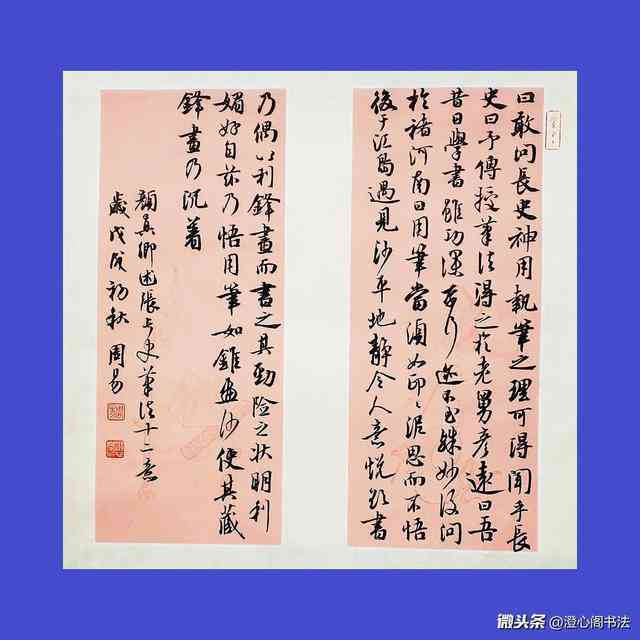 曰敢问長史神用執筆之理可得聞乎長
史曰予傳授筆法得之於老舅彦遠曰吾
昔日學書雖功深奈何迹不至殊妙後问
於褚河南曰用筆當須如印〻泥思而不悟
後于江島遇見沙平地静令人意悦欲書
乃偶以利鋒畫而書之其勁险之状明利
媚好自兹乃悟用筆如錐畫沙使其藏
鋒畫乃沉着
顏真卿述張長史筆法十二意
歲戊戌初秋 周易
微头条 @澄心阁书法